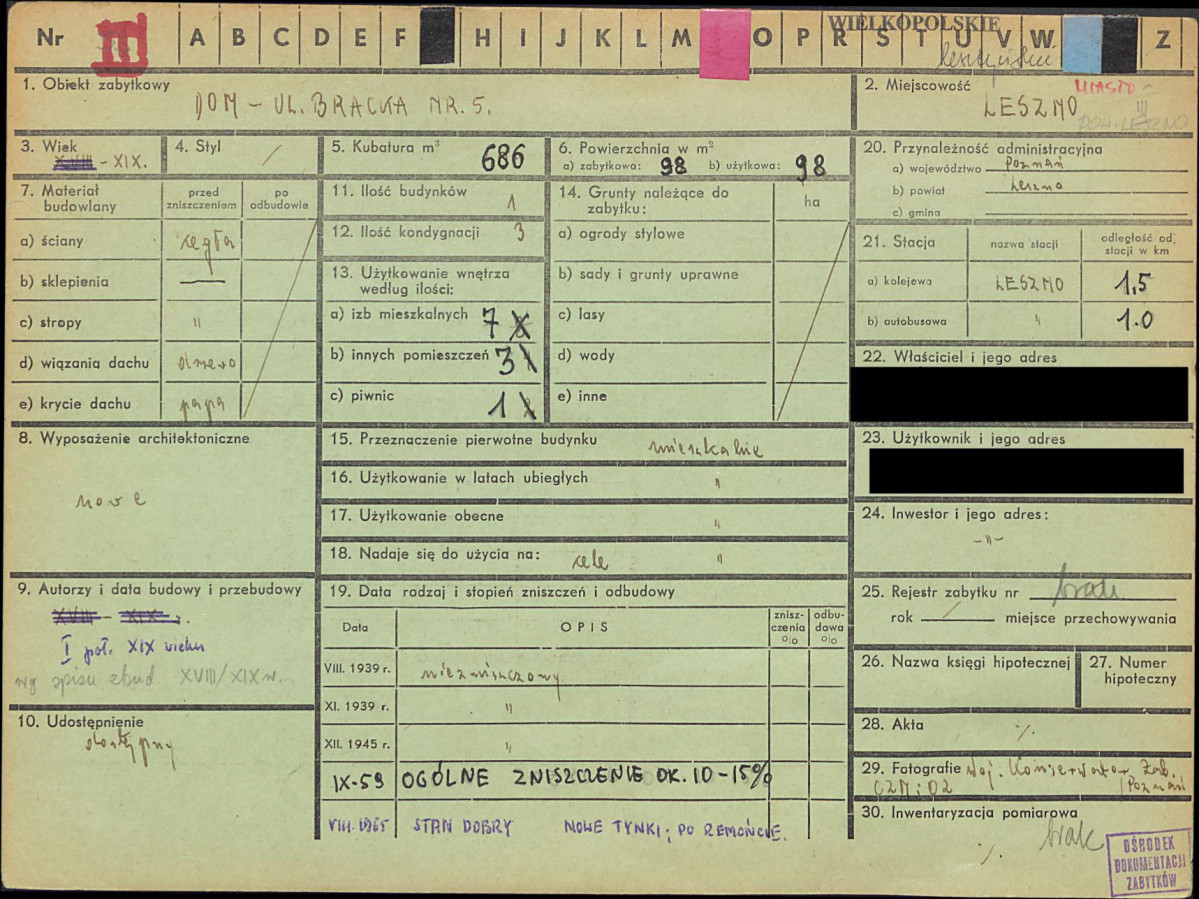 Nr III A B C D E F H I J K L M O P R S T U V W Z
WIELKOPOLSKIE
leszczyńskie
1. Obiekt zabytkowy
DOM – UL. BRACKA NR. 5.
2. Miejscowość
MIASTO -
LESZNO
POW. LESZNO
3. Wiek
XVIII - XIX.
4. Styl /
5. Kubatura m³ 686
6. Powierzchnia w m²
a) zabytkowa: 98 b) użytkowa: 98
20. Przynależność administracyjna
a) województwo Poznań
b) powiat Leszno
c) gmina
7. Materiał budowlany
przed zniszczeniem
po odbudowie
a) ściany cegła
b) sklepienia —
c) stropy "
d) wiązania dachu drzewo
e) krycie dachu papa
11. Ilość budynków 1
12. Ilość kondygnacji 3
13. Użytkowanie wnętrza
według ilości:
a) izb mieszkalnych 7
b) innych pomieszczeń 3
c) piwnic 1
14. Grunty należące do
zabytku:
ha
a) ogrody stylowe
b) sady i grunty uprawne
c) lasy
d) wody
e) inne
21. Stacja
nazwa stacji
odległość od stacji w km
a) kolejowa LESZNO 1,5
b) autobusowa " 1.0
22. Właściciel i jego adres
23. Użytkownik i jego adres
24. Inwestor i jego adres:
-"-
8. Wyposażenie architektoniczne
nowe
15. Przeznaczenie pierwotne budynku mieszkalne
16. Użytkowanie w latach ubiegłych "
17. Użytkowanie obecne "
18. Nadaje się do użycia na: cele "
9. Autorzy i data budowy i przebudowy
XVIII - XIX.
I poł. XIX wieku
wg spisu zbud XVIII/XIX w.
10. Udostępnienie
dostępny
19. Data rodzaj i stopień zniszczeń i odbudowy
Data OPIS znisz-czenia o|o odbu-dowa o|o
VIII. 1939 r. niezniszczony
XI. 1939 r. "
XII. 1945 r. "
IX-59 OGÓLNE ZNISZCZENIE OK. 10-15%
VIII. 1965 STAN DOBRY NOWE TYNKI; PO REMONCIE.
25. Rejestr zabytku nr brak
rok / miejsce przechowywania
26. Nazwa księgi hipotecznej
27. Numer hipoteczny
28. Akta ./.
29. Fotografie Woj. Konserwator Zab.
CZM i OZ / Poznań
30. Inwentaryzacja pomiarowa
brak
./.
OŚRODEK
DOKUMENTACJI
ZABYTKÓW